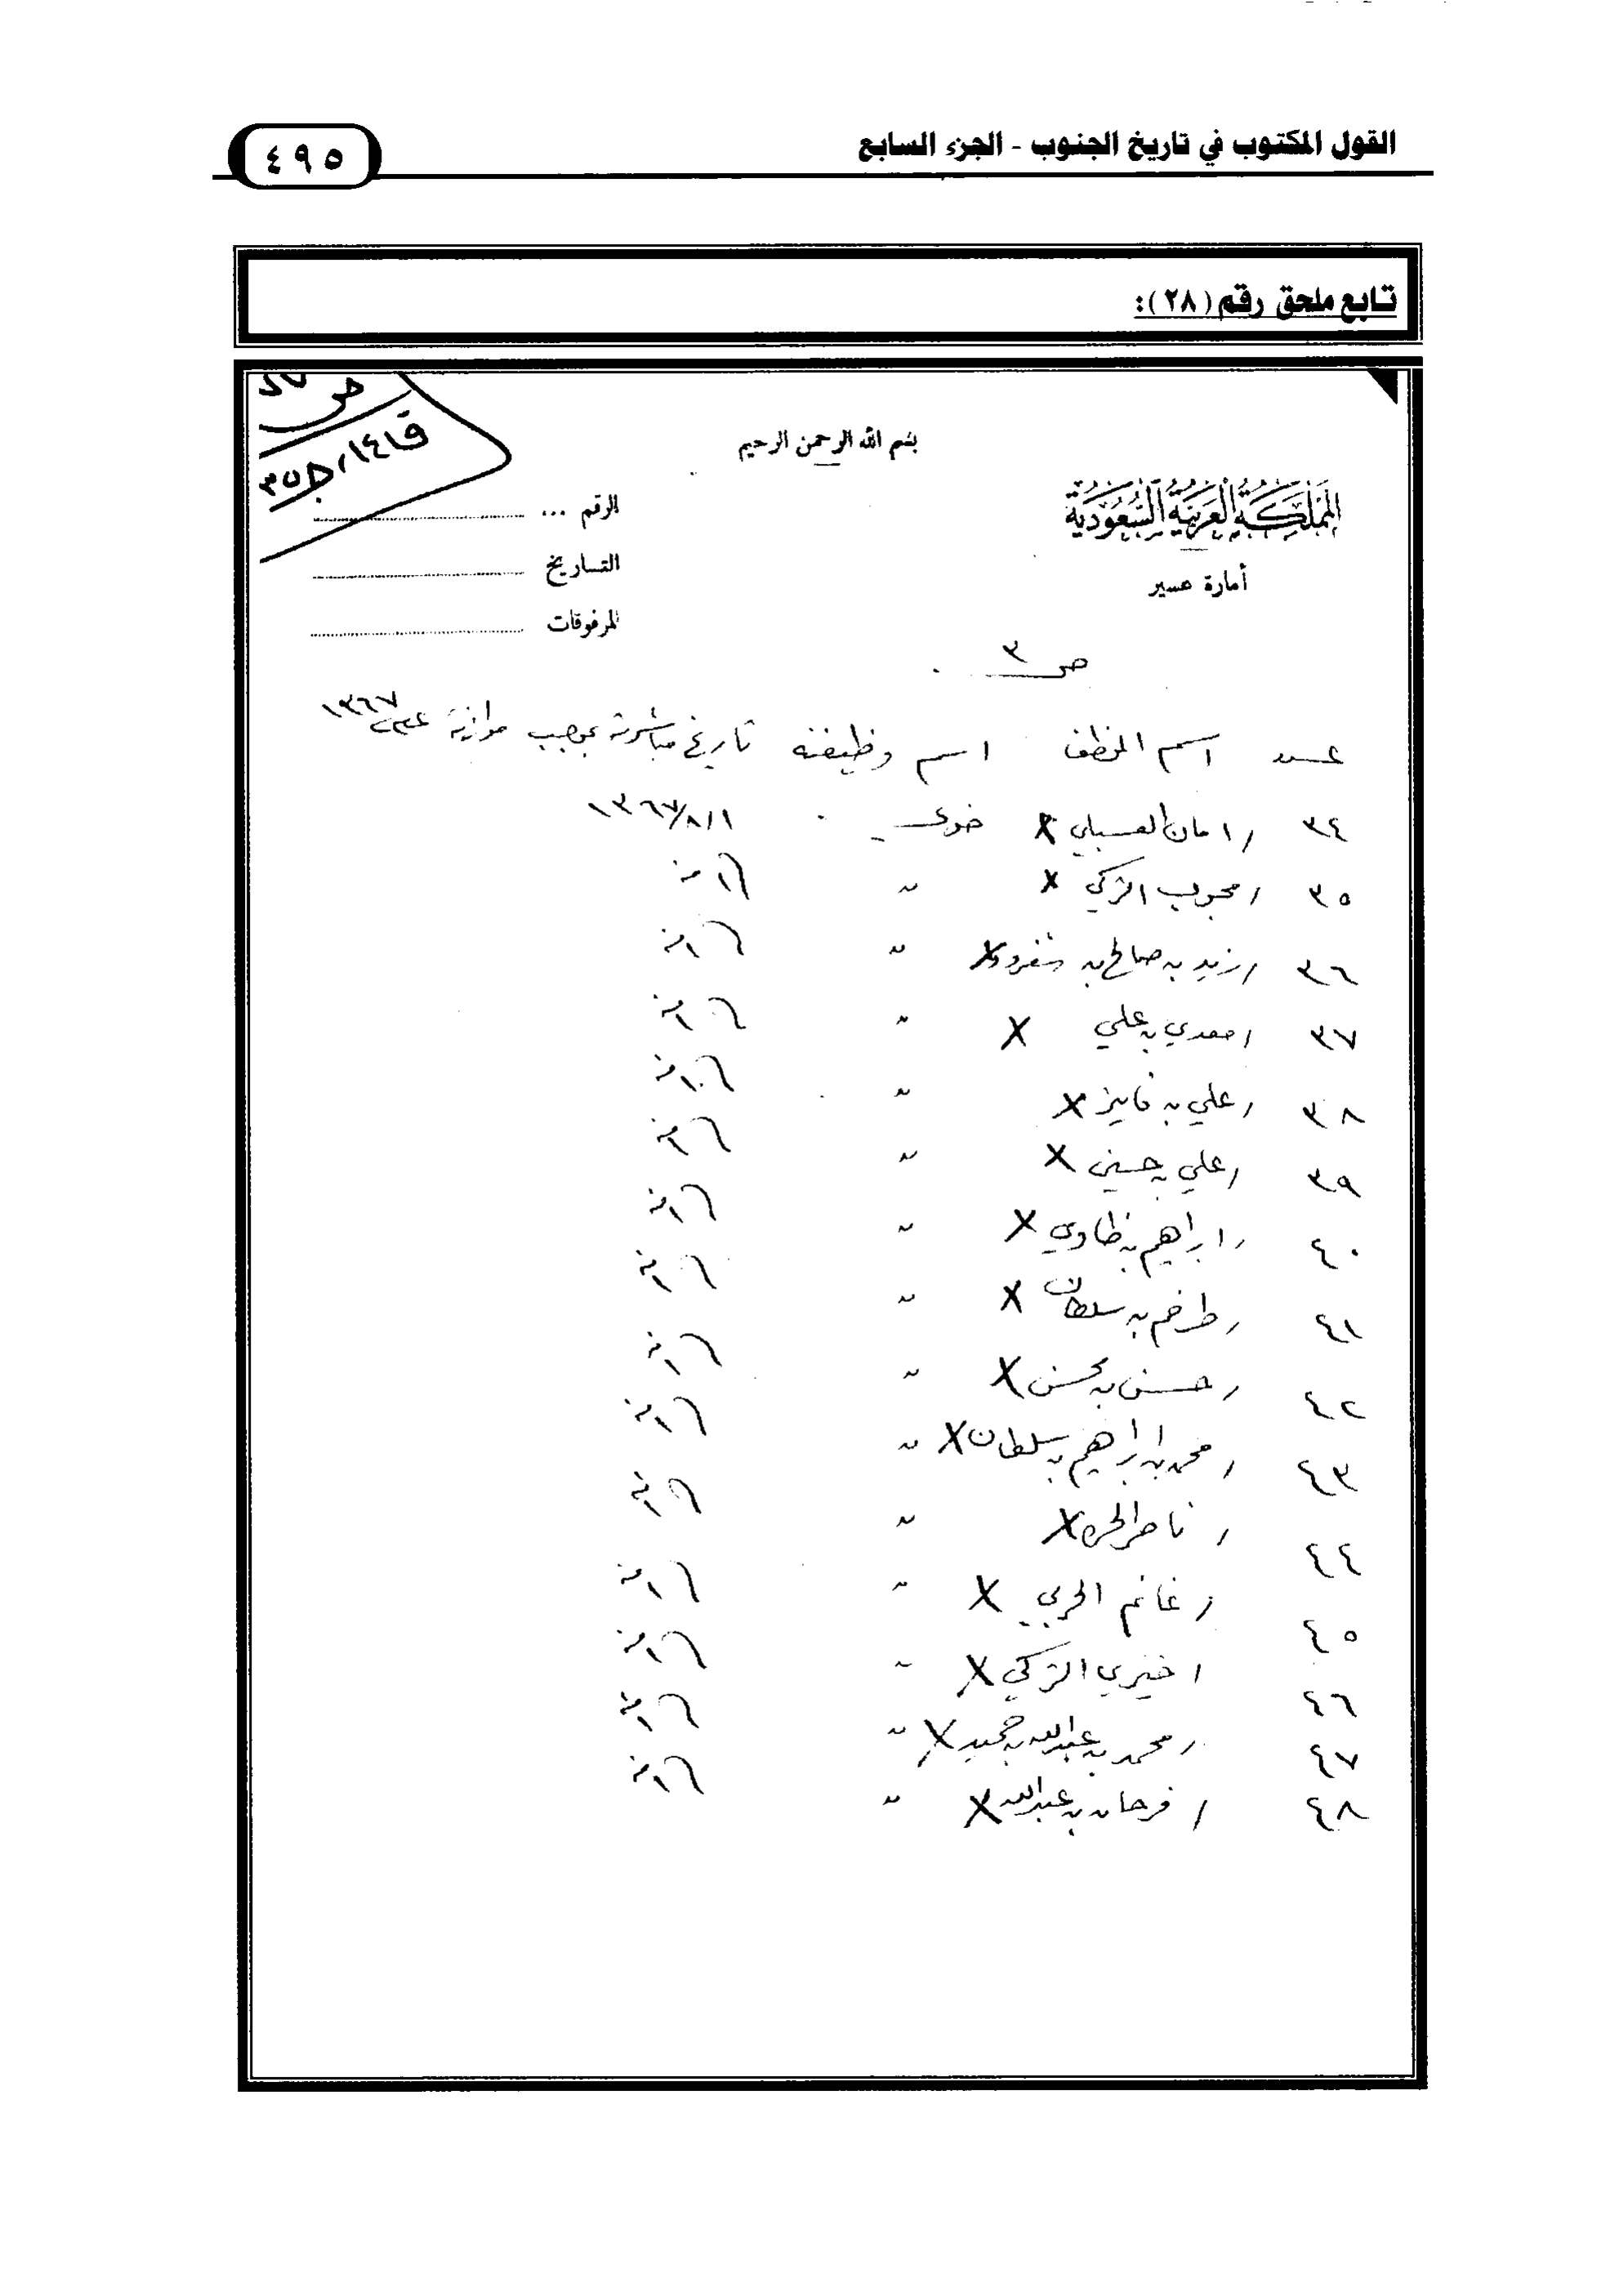 القول المكتوب في تاريخ الجنوب - الجزء السابع
٤٩٥
تابع ملحق رقم (٢٨):
بسم الله الرحمن الرحيم
المملكة العربية السعودية
أمارة عسير
الرقم ...
التاريخ
المرفوقات
ص ٣
عدد اسم الموظف اسم وظيفته تاريخ مباشرته بموجب موازنة عام ١٣٦٧
٣٤ / امان العسبلي X خوي ١٣٦٧/٨/١
٣٥ / محبوب التركي X " "
٣٦ / زيد بن صالح بن X " "
٣٧ / معدي بن علي X " "
٣٨ / علي بن فايز X " "
٣٩ / علي بن حسين X " "
٤٠ / ابراهيم بن X " "
٤١ / بن سلطان X " "
٤٢ / حسن بن محسن X " "
٤٣ / محمد بن ابراهيم بن سلطان X " "
٤٤ / ناصر X " "
٤٥ / غانم الحربي X " "
٤٦ / خيري التركي X " "
٤٧ / محمد بن عبدالله بن حميد X " "
٤٨ / فرحان بن عبدالله X " "